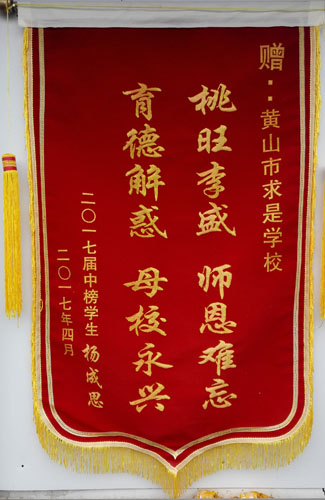 赠：黄山市求是学校
桃旺李盛 师恩难忘
育德解惑 母校永兴
二〇一七届中榜学生 杨成思
二〇一七年四月